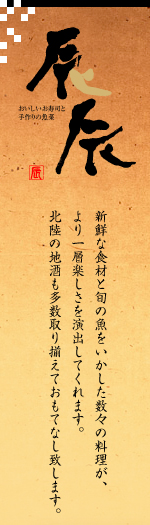 辰辰
おいしいお寿司と
手作りの魚菜
辰
新鮮な食材と旬の魚をいかした数々の料理が、
より一層楽しさを演出してくれます。
北陸の地酒も多数取り揃えておもてなし致します。